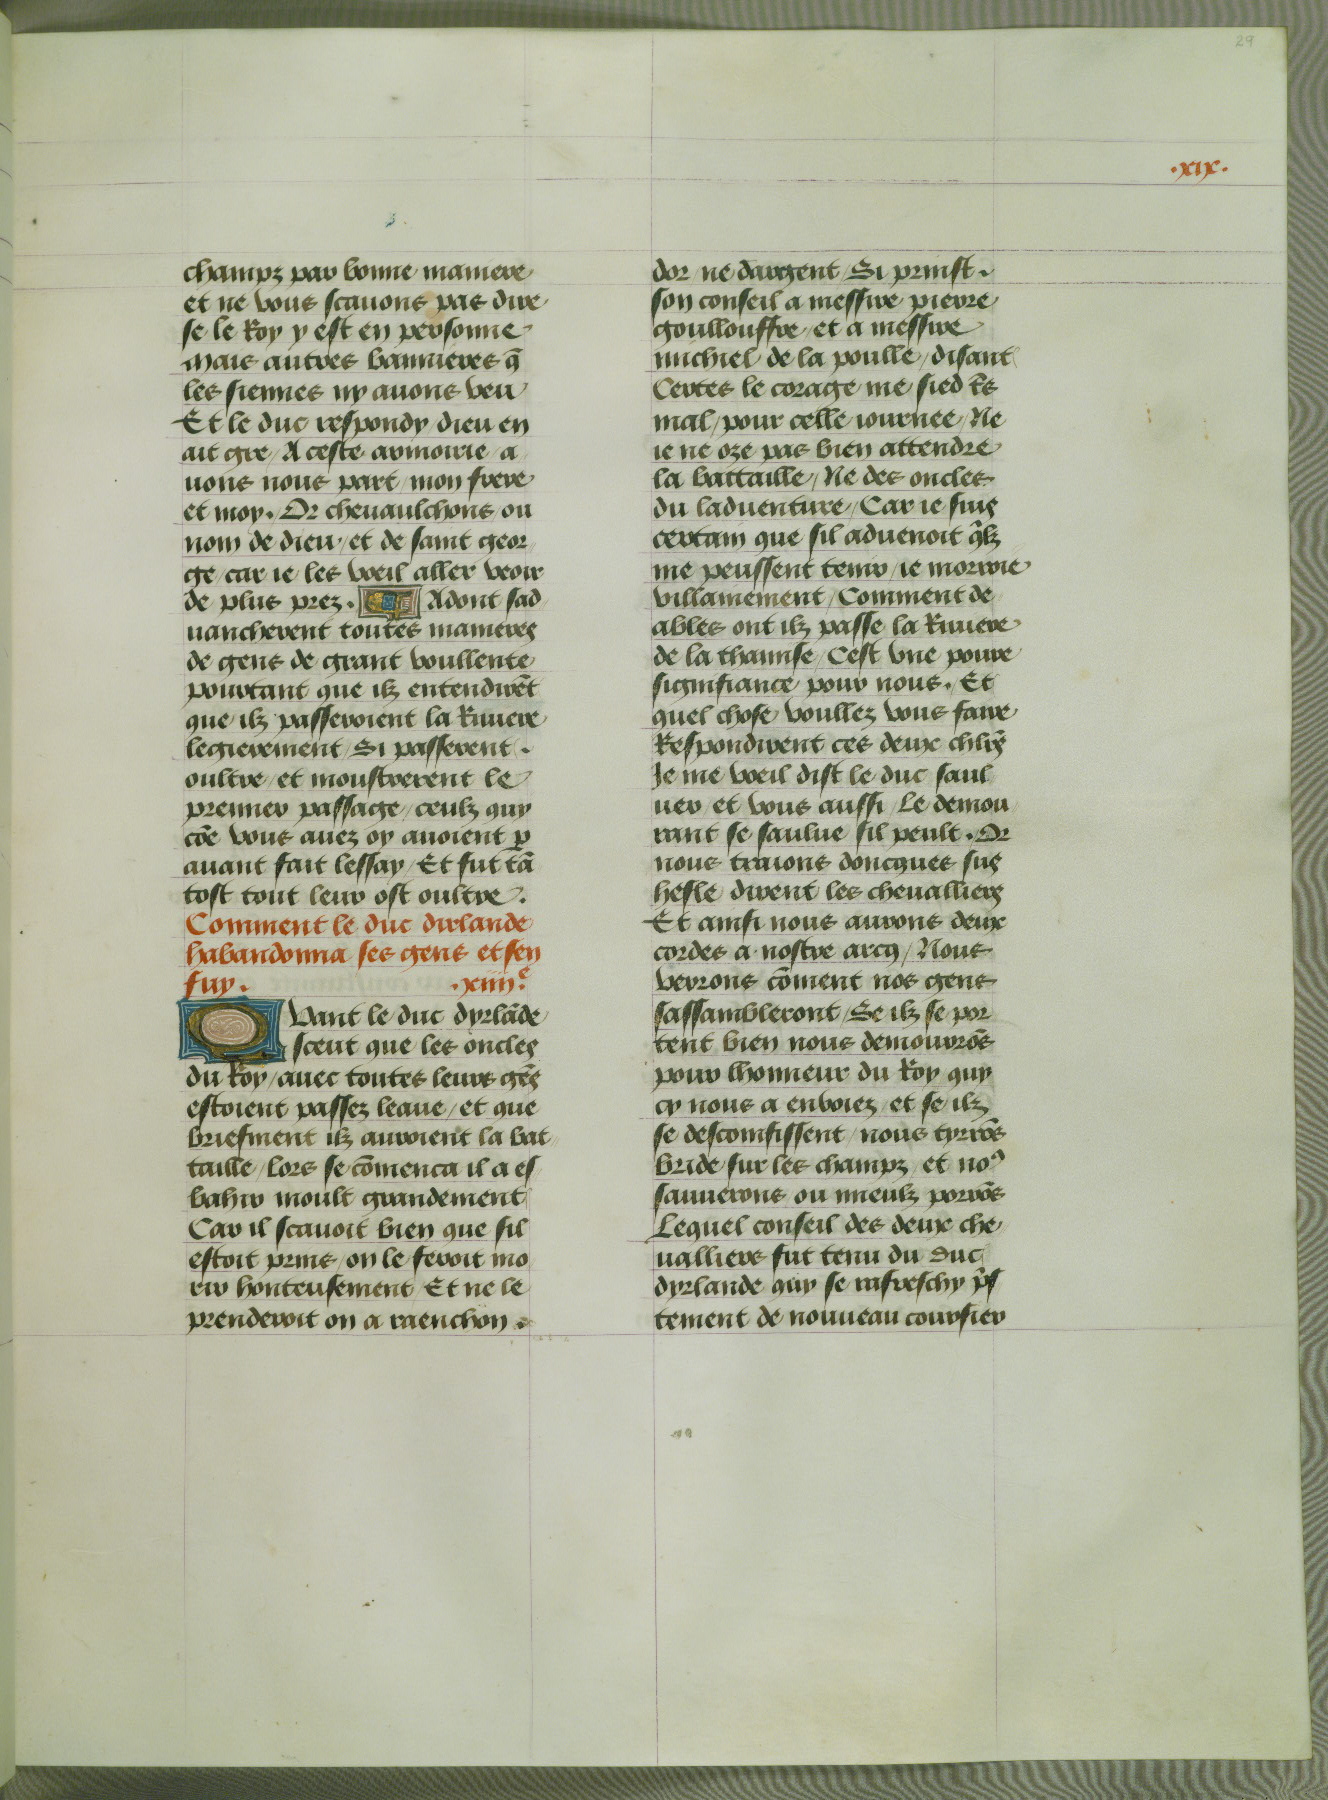 29
.xix.
champz par bonne maniere
et ne vous scauons pas dire
se le Roy y est en personne
Mais autres bannieres q̃
les siennes ny auons veu
Et le duc respondy dieu en
ait gre / A ceste armoirie / a
uons nous part / mon frere
et moy . Or cheuaulchons ou
nom de dieu / et de saint geor
ge / car ie les voeil aller veoir
de plus prez . Adont sad
uancherent toutes manieres
de gens de grant voullente
pourtant que ilz entendirẽt
que ilz passeroient la Riuiere
legierement / Si passerent .
oultre / et moustrerent le
premier passage / ceulz quy
cõe vous auez oy auoient p̱
auant fait lessay / Et fut tã
tost tout leur ost oultre .
Comment le duc dirlande
habandonna ses gens et sen
fuy . .xiiii.e
Quant le duc dyrlãde
sceut que les oncles
du Roy / auec toutes leurs gẽs
estoient passez leaue / et que
briefment ilz auroient la bat
taille / lors se cõmenca il a es
bahir moult grandement
Car il scauoit bien que sil
estoit prins / on le feroit mo
rir honteusement / Et ne le
prenderoit on a raenchon .
dor / ne dargent / Si prinst .
son conseil a messire pierre
goullouffre / et a messire
michiel de la poulle / disant
Certes le corage me sied tr̃s
mal / pour celle iournee / Ne
ie ne oze pas bien attendre
la battaille / Ne des oncles
du laduenture / Car ie suis
certain que sil aduenoit q̃lz
me peussent tenir / ie morroie
villainement / Comment de
ables ont ilz passe la Riuiere
de la thamse / Cest vne poure
signifiance pour nous . Et
quel chose voullez vous faire
Respondirent ces deux chlr̃s
Je me voeil dist le duc saul
uer / et vous aussi / Le demou
rant se saulue sil peult . Or
nous traions doncques sus
hesle dirent les cheualliers
Et ainsi nous aurons deux
cordes a nostre arcq / Nous
verrons cõment nos gens
sassambleront / Se ilz se por
tent bien nous demourrõs
pour lhonneur du Roy quy
cy nous a enuoiez / et se ilz
se desconfissent / nous tyrrõs
bride sur les champz / et no9
sauuerons ou mieulz porrõs
Lequel conseil des deux che
ualliers fut tenu du duc
dyrlande quy se rafreschy p̃s
tement de nouueau coursier